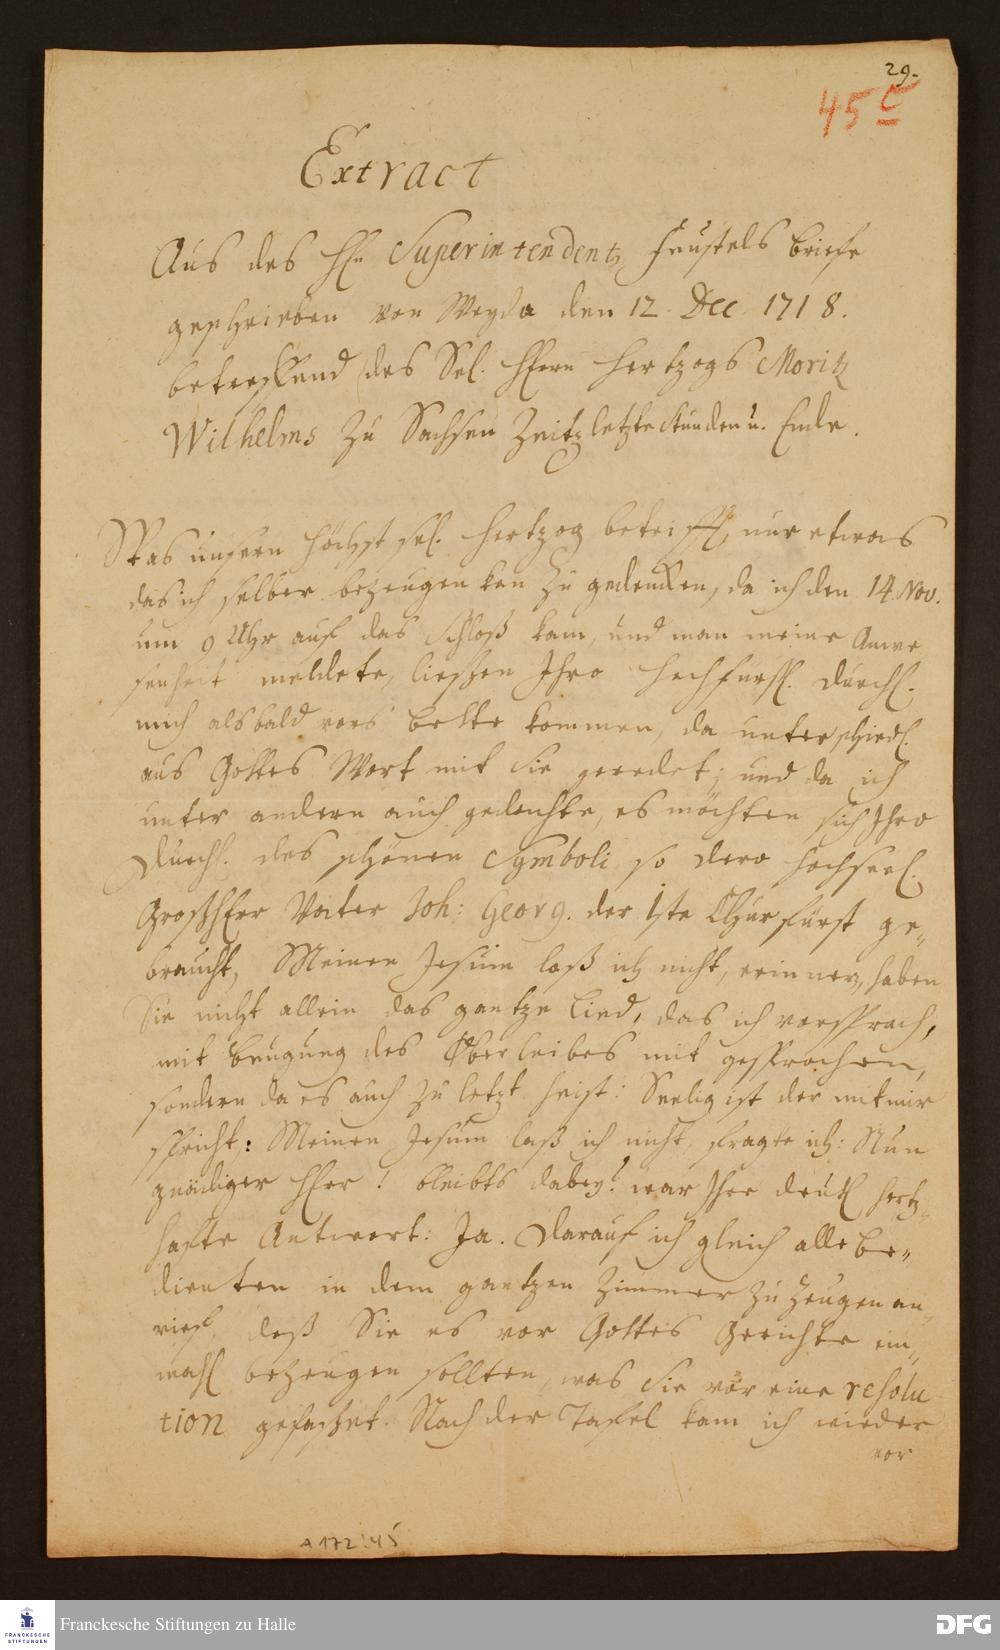 29.
45 C
Extract
Aus des Hn Superintendentz Feustels briefe
geschrieben von Weyda den 12. Dec. 1718.
betreffend des Sel. Herrn Hertzogs Moritz
Wilhelms zu Sachsen Zeitz letzte Stunden u. Ende.
Was unsern höchst sel. Hertzog betrifft, nur etwas
das ich selber bezeugen kan zu gedencken, da ich den 14. Nov.
um 9 Uhr auf das Schloß kam, und man meine Anwe
senheit meldete, liessen Ihro Hochfürstl. Durchl.
mich alsbald vors bette kommen, da unterschiedl.
aus Gottes Wort mit Sie geredet; und da ich
unter andern auch gedachte, es möchten sich Ihro
Durchl. des schönen Symboli so dero Hochseel.
Großherr Vater Joh: Georg. der 1ste Churfürst ge„
braucht, Meinen Jesum laß ich nicht, erinnern, haben
Sie nicht allein das gantze Lied, das ich vorsprach,
mit beugung des Oberleibes mit gesprochen,
sondern da es auch zu letzt heist: Seelig ist der mit mir
spricht: Meinen Jesum laß ich nicht, fragte ich: Nun
gnädiger Herr! bleibts dabey? war Ihre deutl. hertz„
hafte Antwort: Ja. Darauf ich gleich alle be„
dienten in dem gantzen Zimmer zu Zeugen an„
rief, daß Sie es vor Gottes Gerichte ein„
mahl bezeugen sollten, was Sie vor eine resolu
tion gefasset. Nach der Tafel kam ich wieder
vor
A 172:45
Franckesche Stiftungen zu Halle
FRANCKESCHE
STIFTUNGEN
DFG